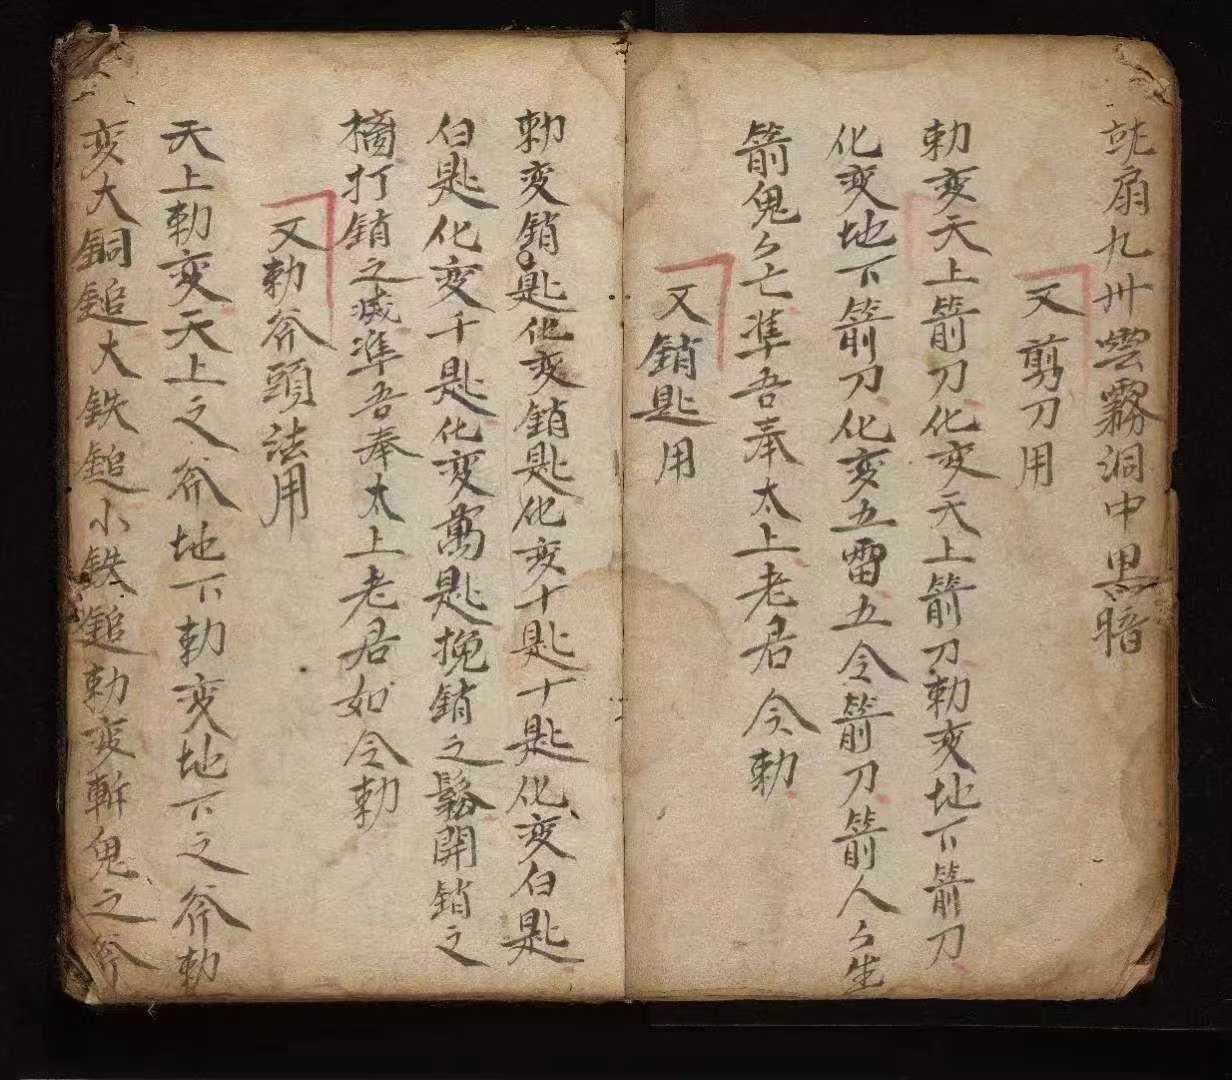 就扇九州雲霧洞中黒暗
又剪刀用
勅变天上箭刀化变天上箭刀勅变地下箭刀
化变地下箭刀化变五雷五令箭刀箭人々生
箭鬼々亡準吾奉太上老君令勅
又銷匙用
勅变銷匙化变銷匙化变十匙十匙化变白匙
白匙化变千匙化变萬匙挽銷之鬆開銷之
摘打銷之滅準吾奉太上老君如令勅
又勅斧頭法用
天上勅变天上之斧地下勅变地下之斧勅
变大銅鎚大鉄鎚小鉄鎚勅变斬鬼之斧